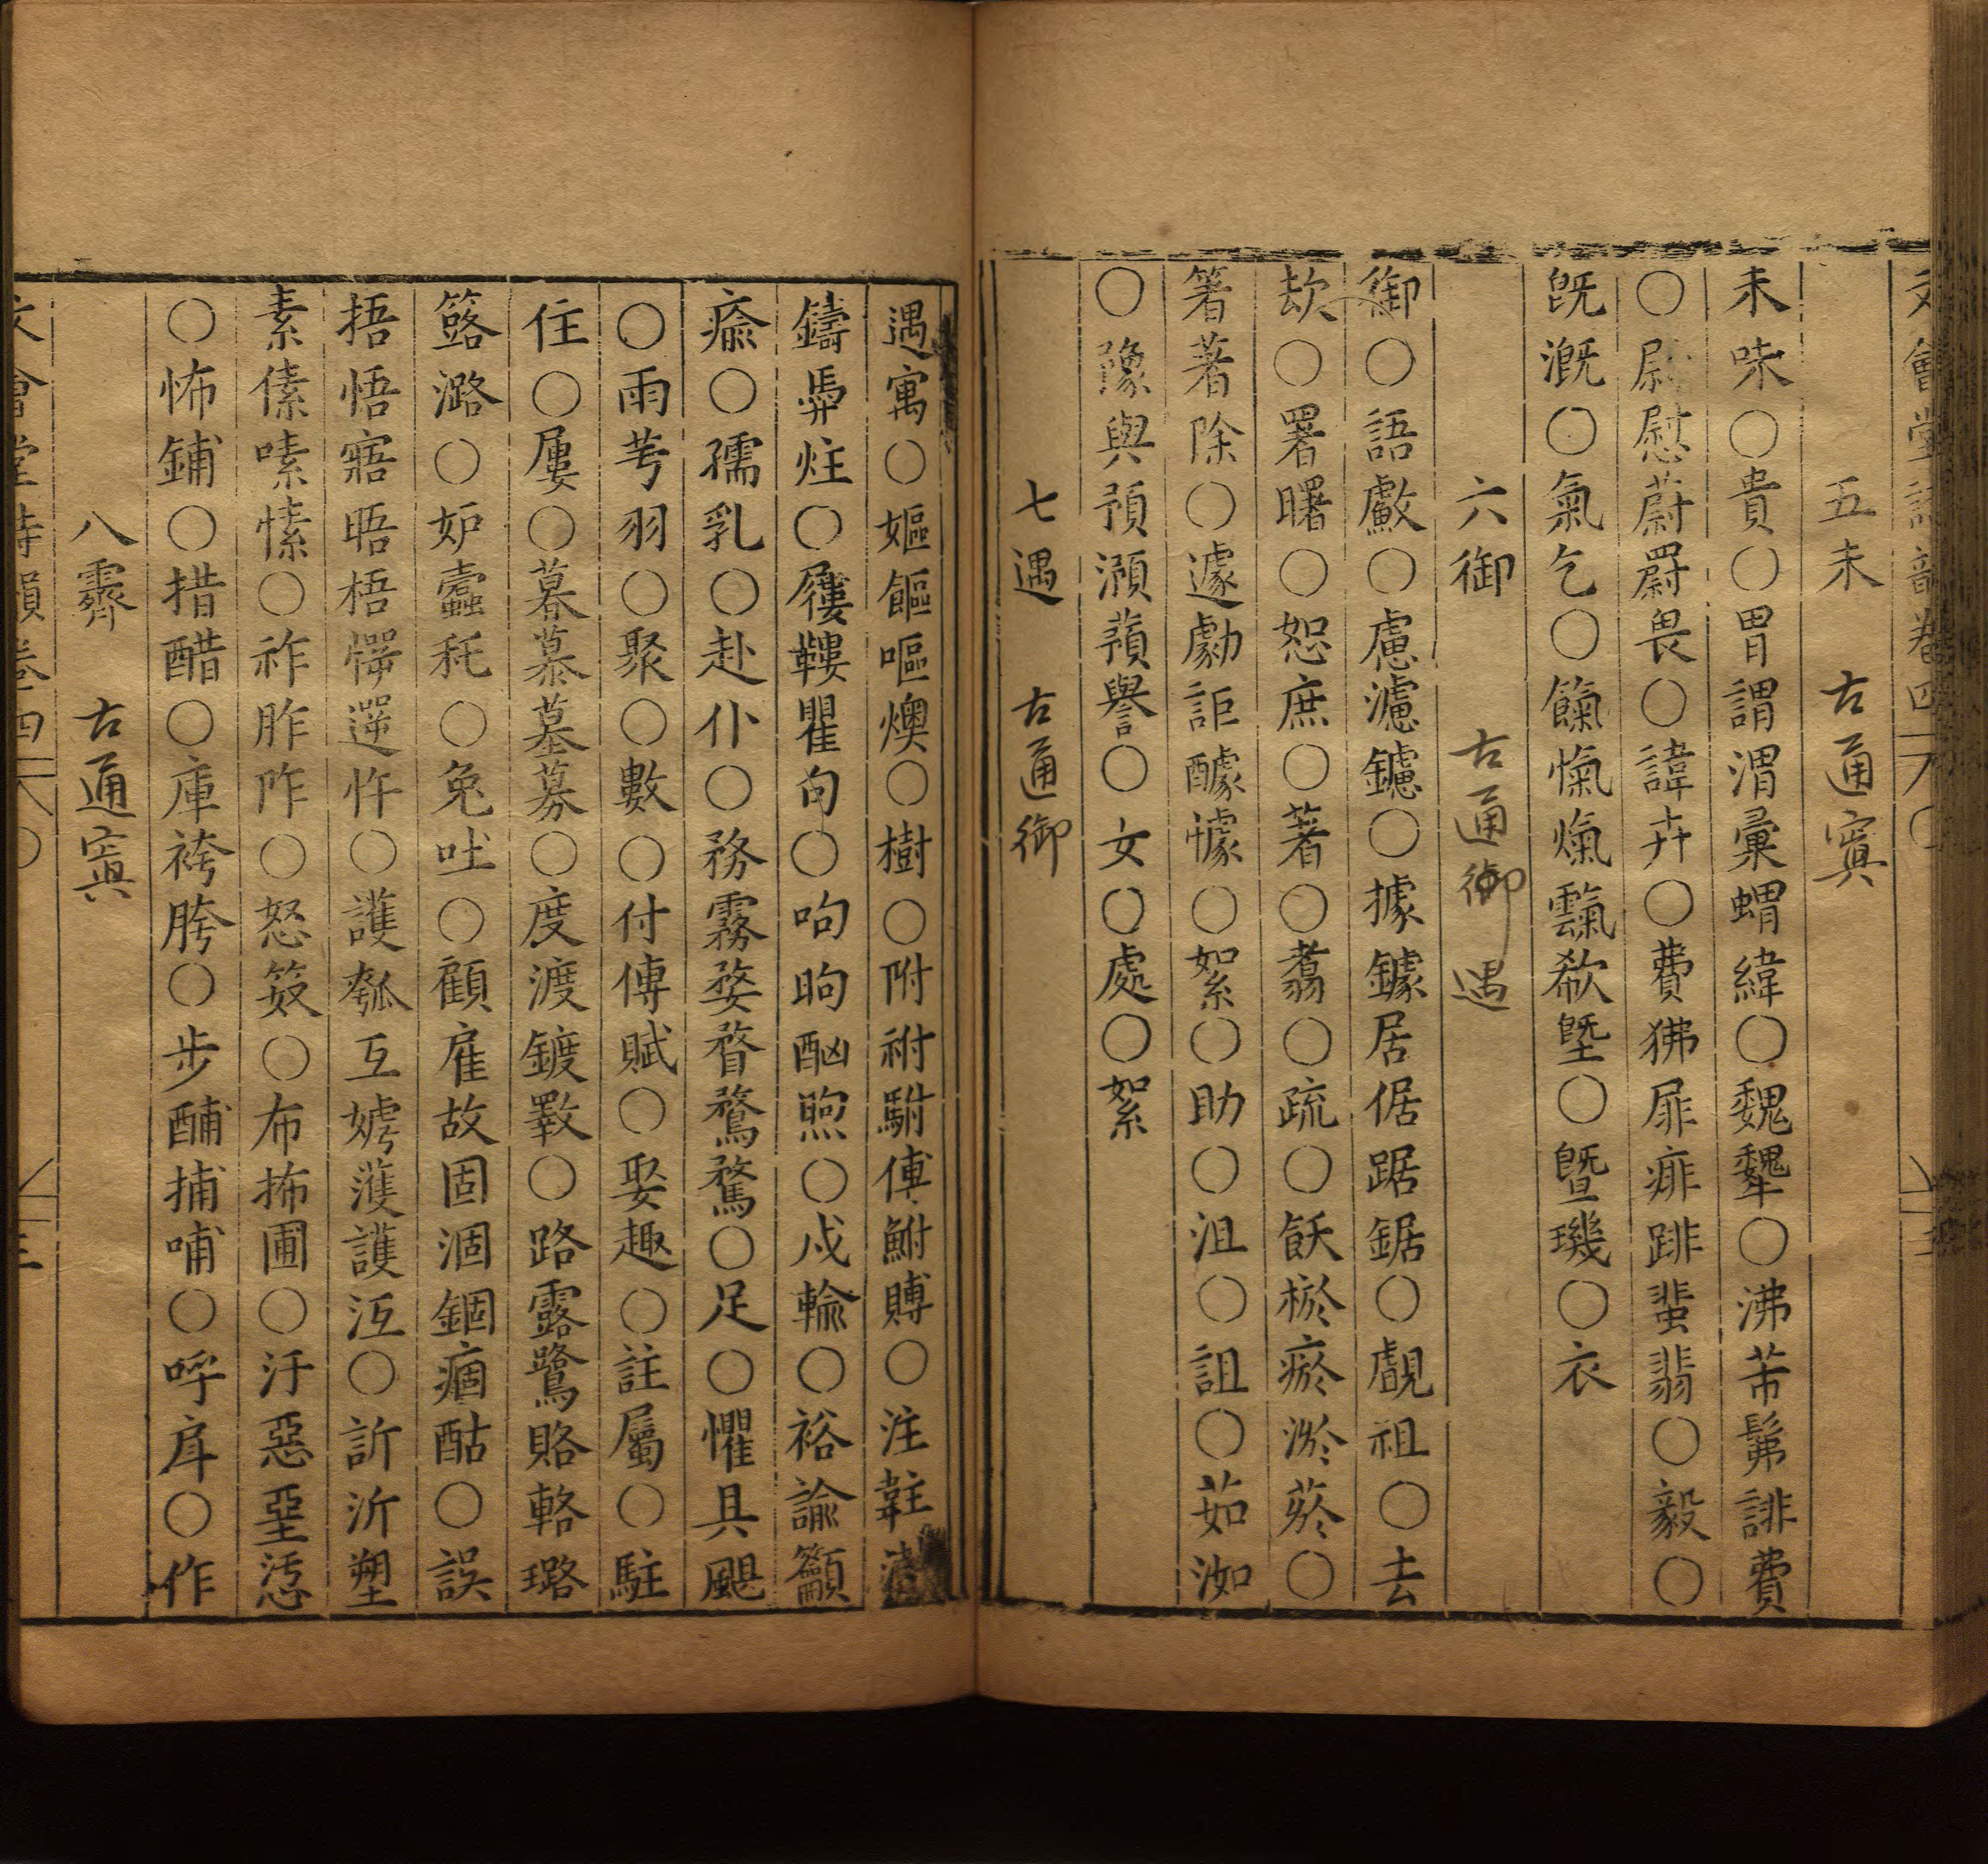 文會堂詩韻卷四
五未　古通寘
未味○貴○胃謂渭彙蝟緯○魏犩○沸芾髴誹費
○尉慰蔚罻畏○諱卉○費狒屝痱跰蜚翡○毅○
旣漑○氣乞○餼愾熂霼欷墍○曁璣○衣
六御　古通御遇
御○語𠪚○慮濾鑢○據鐻居倨踞鋸○覰狙○去
㰦○署曙○恕庶○著○翥○疏○飫棜瘀淤菸○
箸著除○遽勮詎醵懅○絮○助○沮○詛○茹洳
○豫與預澦蕷譽○女○處○絮
七遇　古通御
遇寓○嫗饇嘔燠○樹○附祔駙傅鮒賻○注䪒
鑄馵炷○屨鞻瞿句○呴昫酗煦○戍輸○裕諭籲
瘉○孺乳○赴仆○務霧婺瞀鶩騖○足○懼具颶
○雨芌羽○聚○數○付傅賦○娶趣○註屬○駐
住○屢○暮慕墓募○度渡鍍斁○路露鷺賂輅璐
簬潞○妒蠹秅○兔吐○顧雇故固涸錮痼酤○誤
捂悟寤晤梧㦍遻忤○護瓠互嫭濩頀沍○訴泝塑
素傃嗉愫○祚胙阼○怒笯○布抪圃○汙惡堊㤲
○怖鋪○措醋○庫袴胯○步酺捕哺○呼戽○作
八霽　古通寘
文會堂詩韻卷四